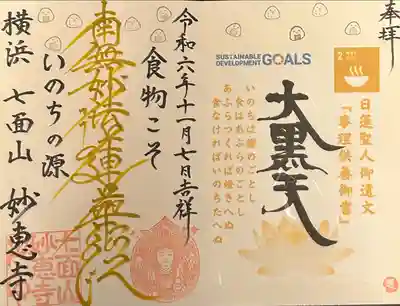 奉拝
2 飢餓を
SUSTAINABLE
DEVELOPMENT GOALS
日蓮聖人御遺文
『事理供養御書』
大黒天
いのちは燈のごとし
食はあぶらのごとし
あぶらつくれば燈きへぬ
食なければいのちたへぬ
令和六年十一月七日吉祥
食物こそ
南無妙法蓮華経
いのちの源
横浜 七面山 妙恵寺
七面山
妙恵寺